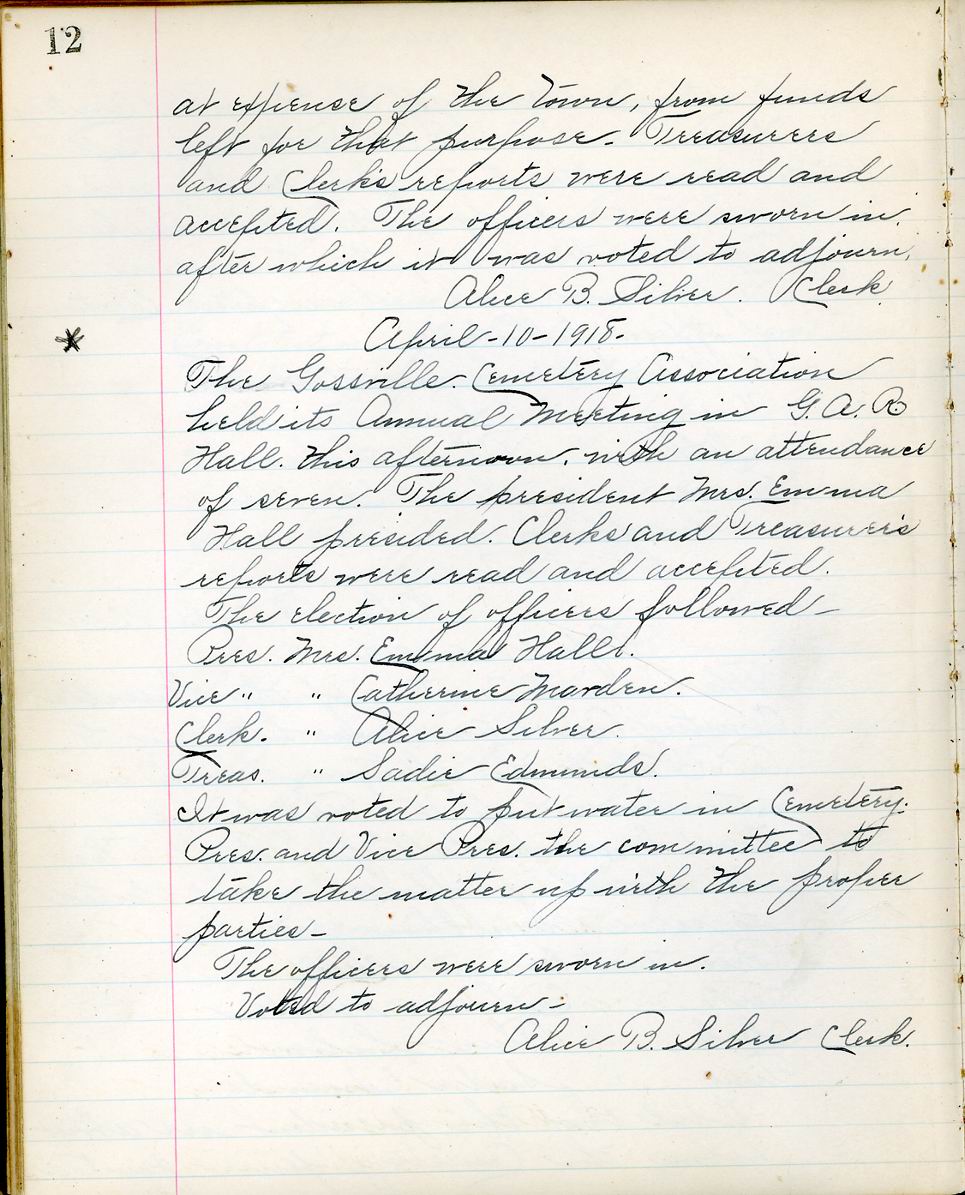 12
at expense of the Town, from funds
left for that purpose - Treasurers
and Clerk's reports were read and
accepted. The officers were sworn in.
after which it was voted to adjourn.
Alice B. Silver. Clerk
April - 10 - 1918 -
*
The Gossville Cemetery Association
held its Annual Meeting in G. A. R.
Hall. this afternoon. with an attendance
of seven. The president Mrs. Emma
Hall presided. Clerks and Treasurer's
reports were read and accepted.
The election of officers followed -
Pres. Mrs. Emma Hall.
Vice " " Catherine Marden.
Clerk. " Alice Silver.
Treas. " Sadie Edmunds.
It was voted to put water in Cemetery.
Pres. and Vice Pres. the committee to
take the matter up with the proper
parties -
The officers were sworn in.
Voted to adjourn -
Alice B. Silver Clerk.